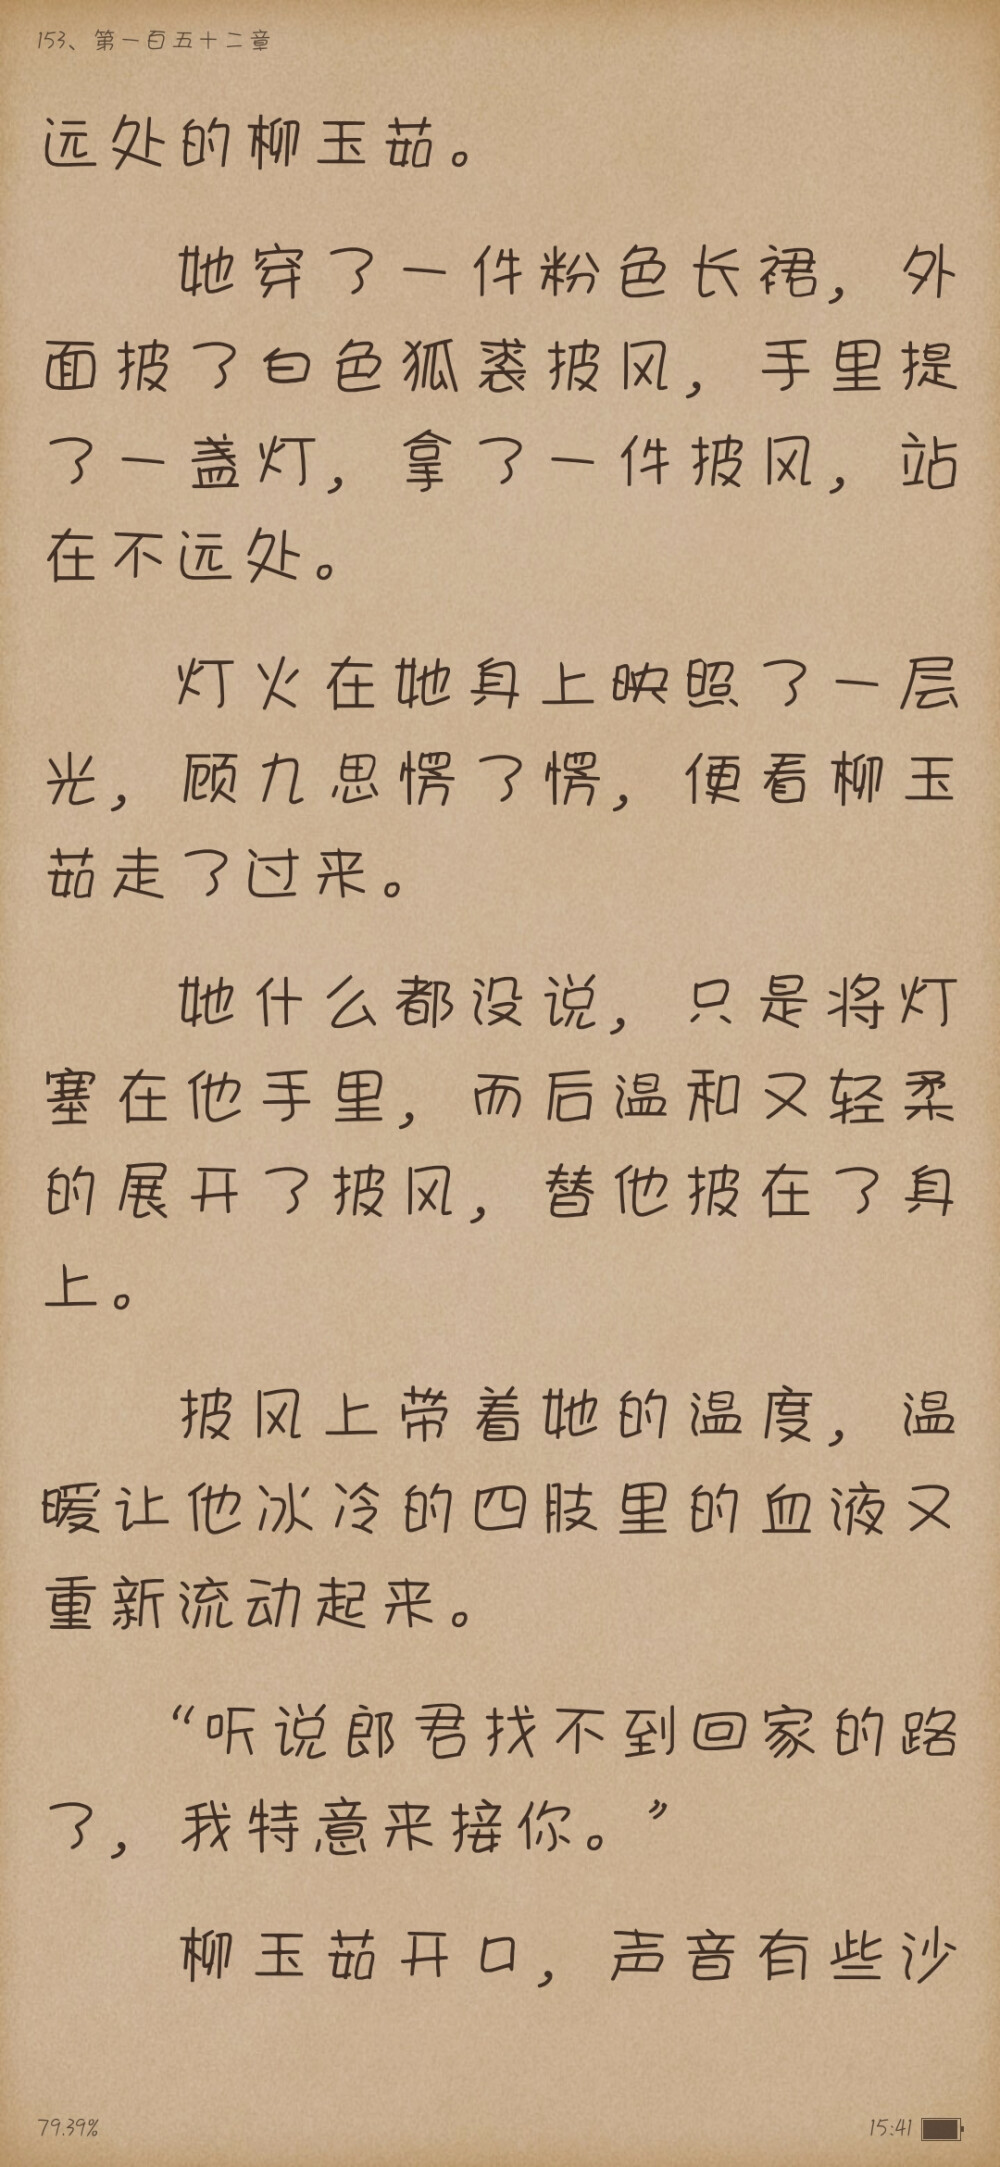 153、第一百五十二章
远处的柳玉茹。
她穿了一件粉色长裙，外
面披了白色狐裘披风，手里提
了一盏灯，拿了一件披风，站
在不远处。
灯火在她身上映照了一层
光，顾九思愣了愣，便看柳玉
茹走了过来。
她什么都没说，只是将灯
塞在他手里，而后温和又轻柔
的展开了披风，替他披在了身
上。
披风上带着她的温度，温
暖让他冰冷的四肢里的血液又
重新流动起来。
“听说郎君找不到回家的路
了，我特意来接你。”
柳玉茹开口，声音有些沙
79.39%
15:41